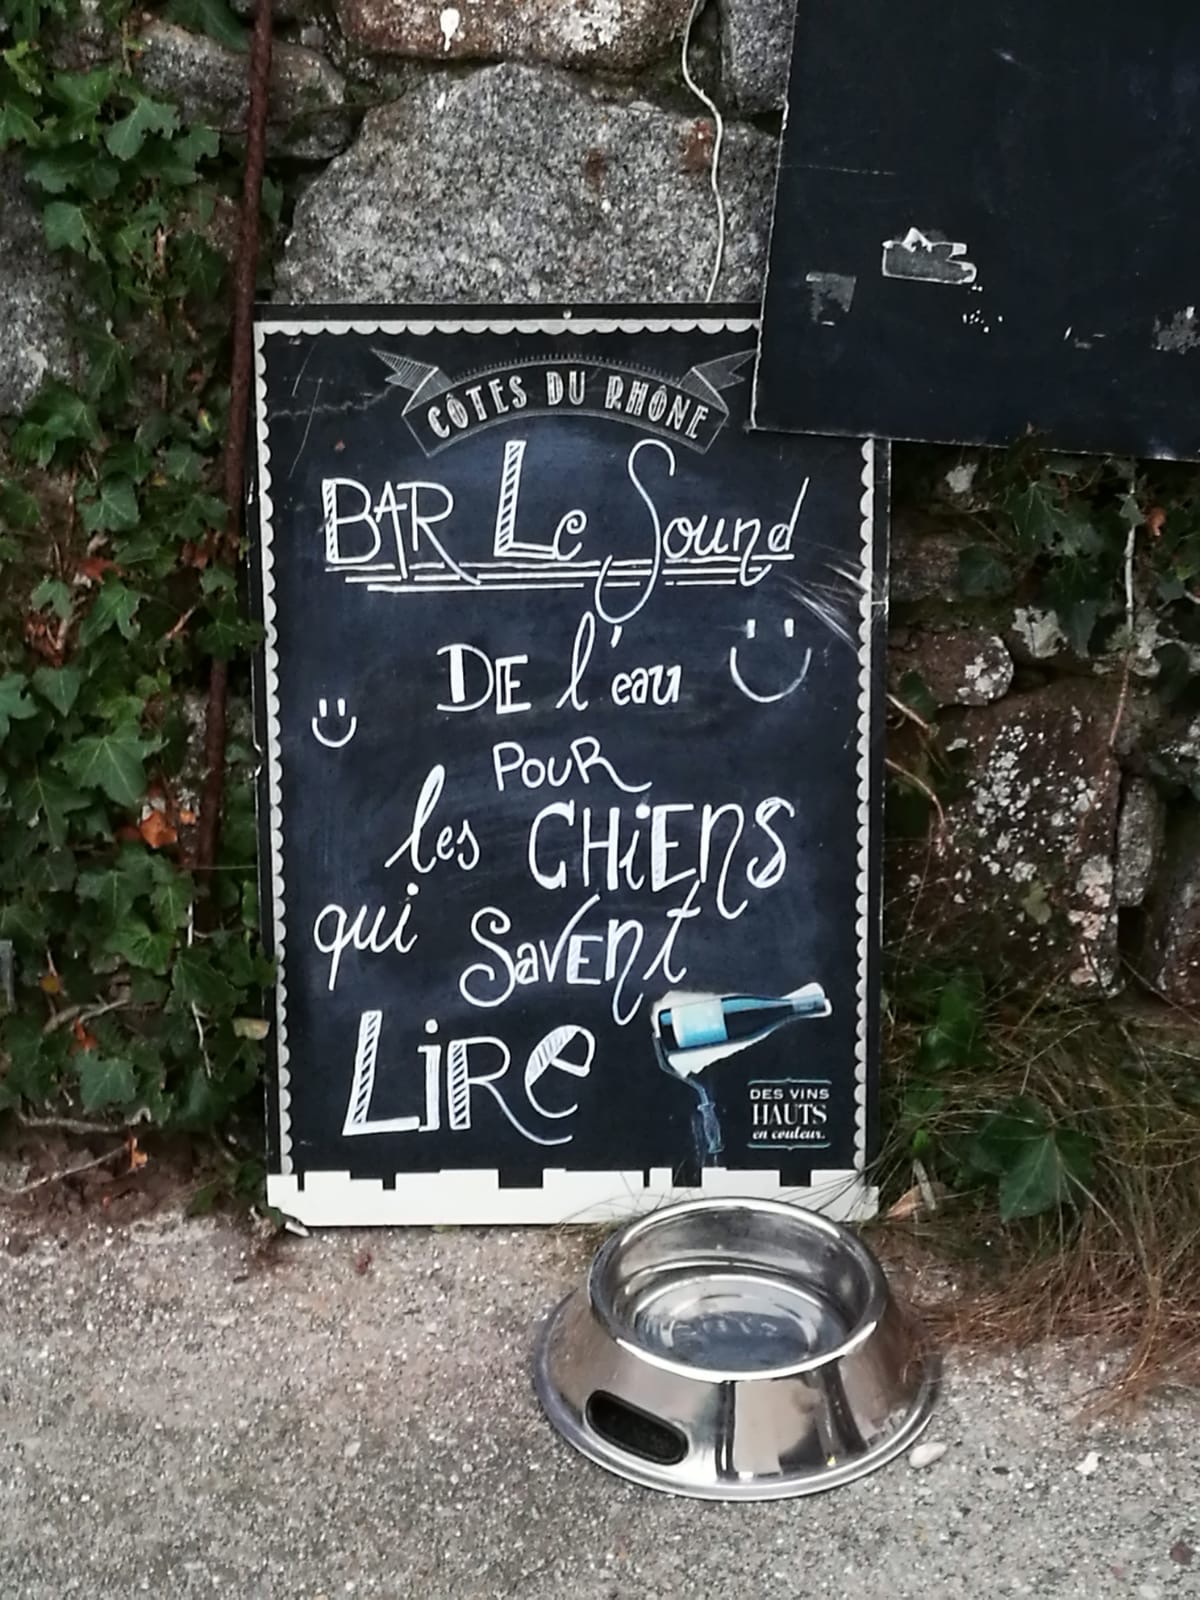 CÔTES DU RHÔNE
BAR Le Sound
DE l'eau
POUR
les CHiEnS
qui SavEnt
LiRe
DES VINS
HAUTS
en couleur.